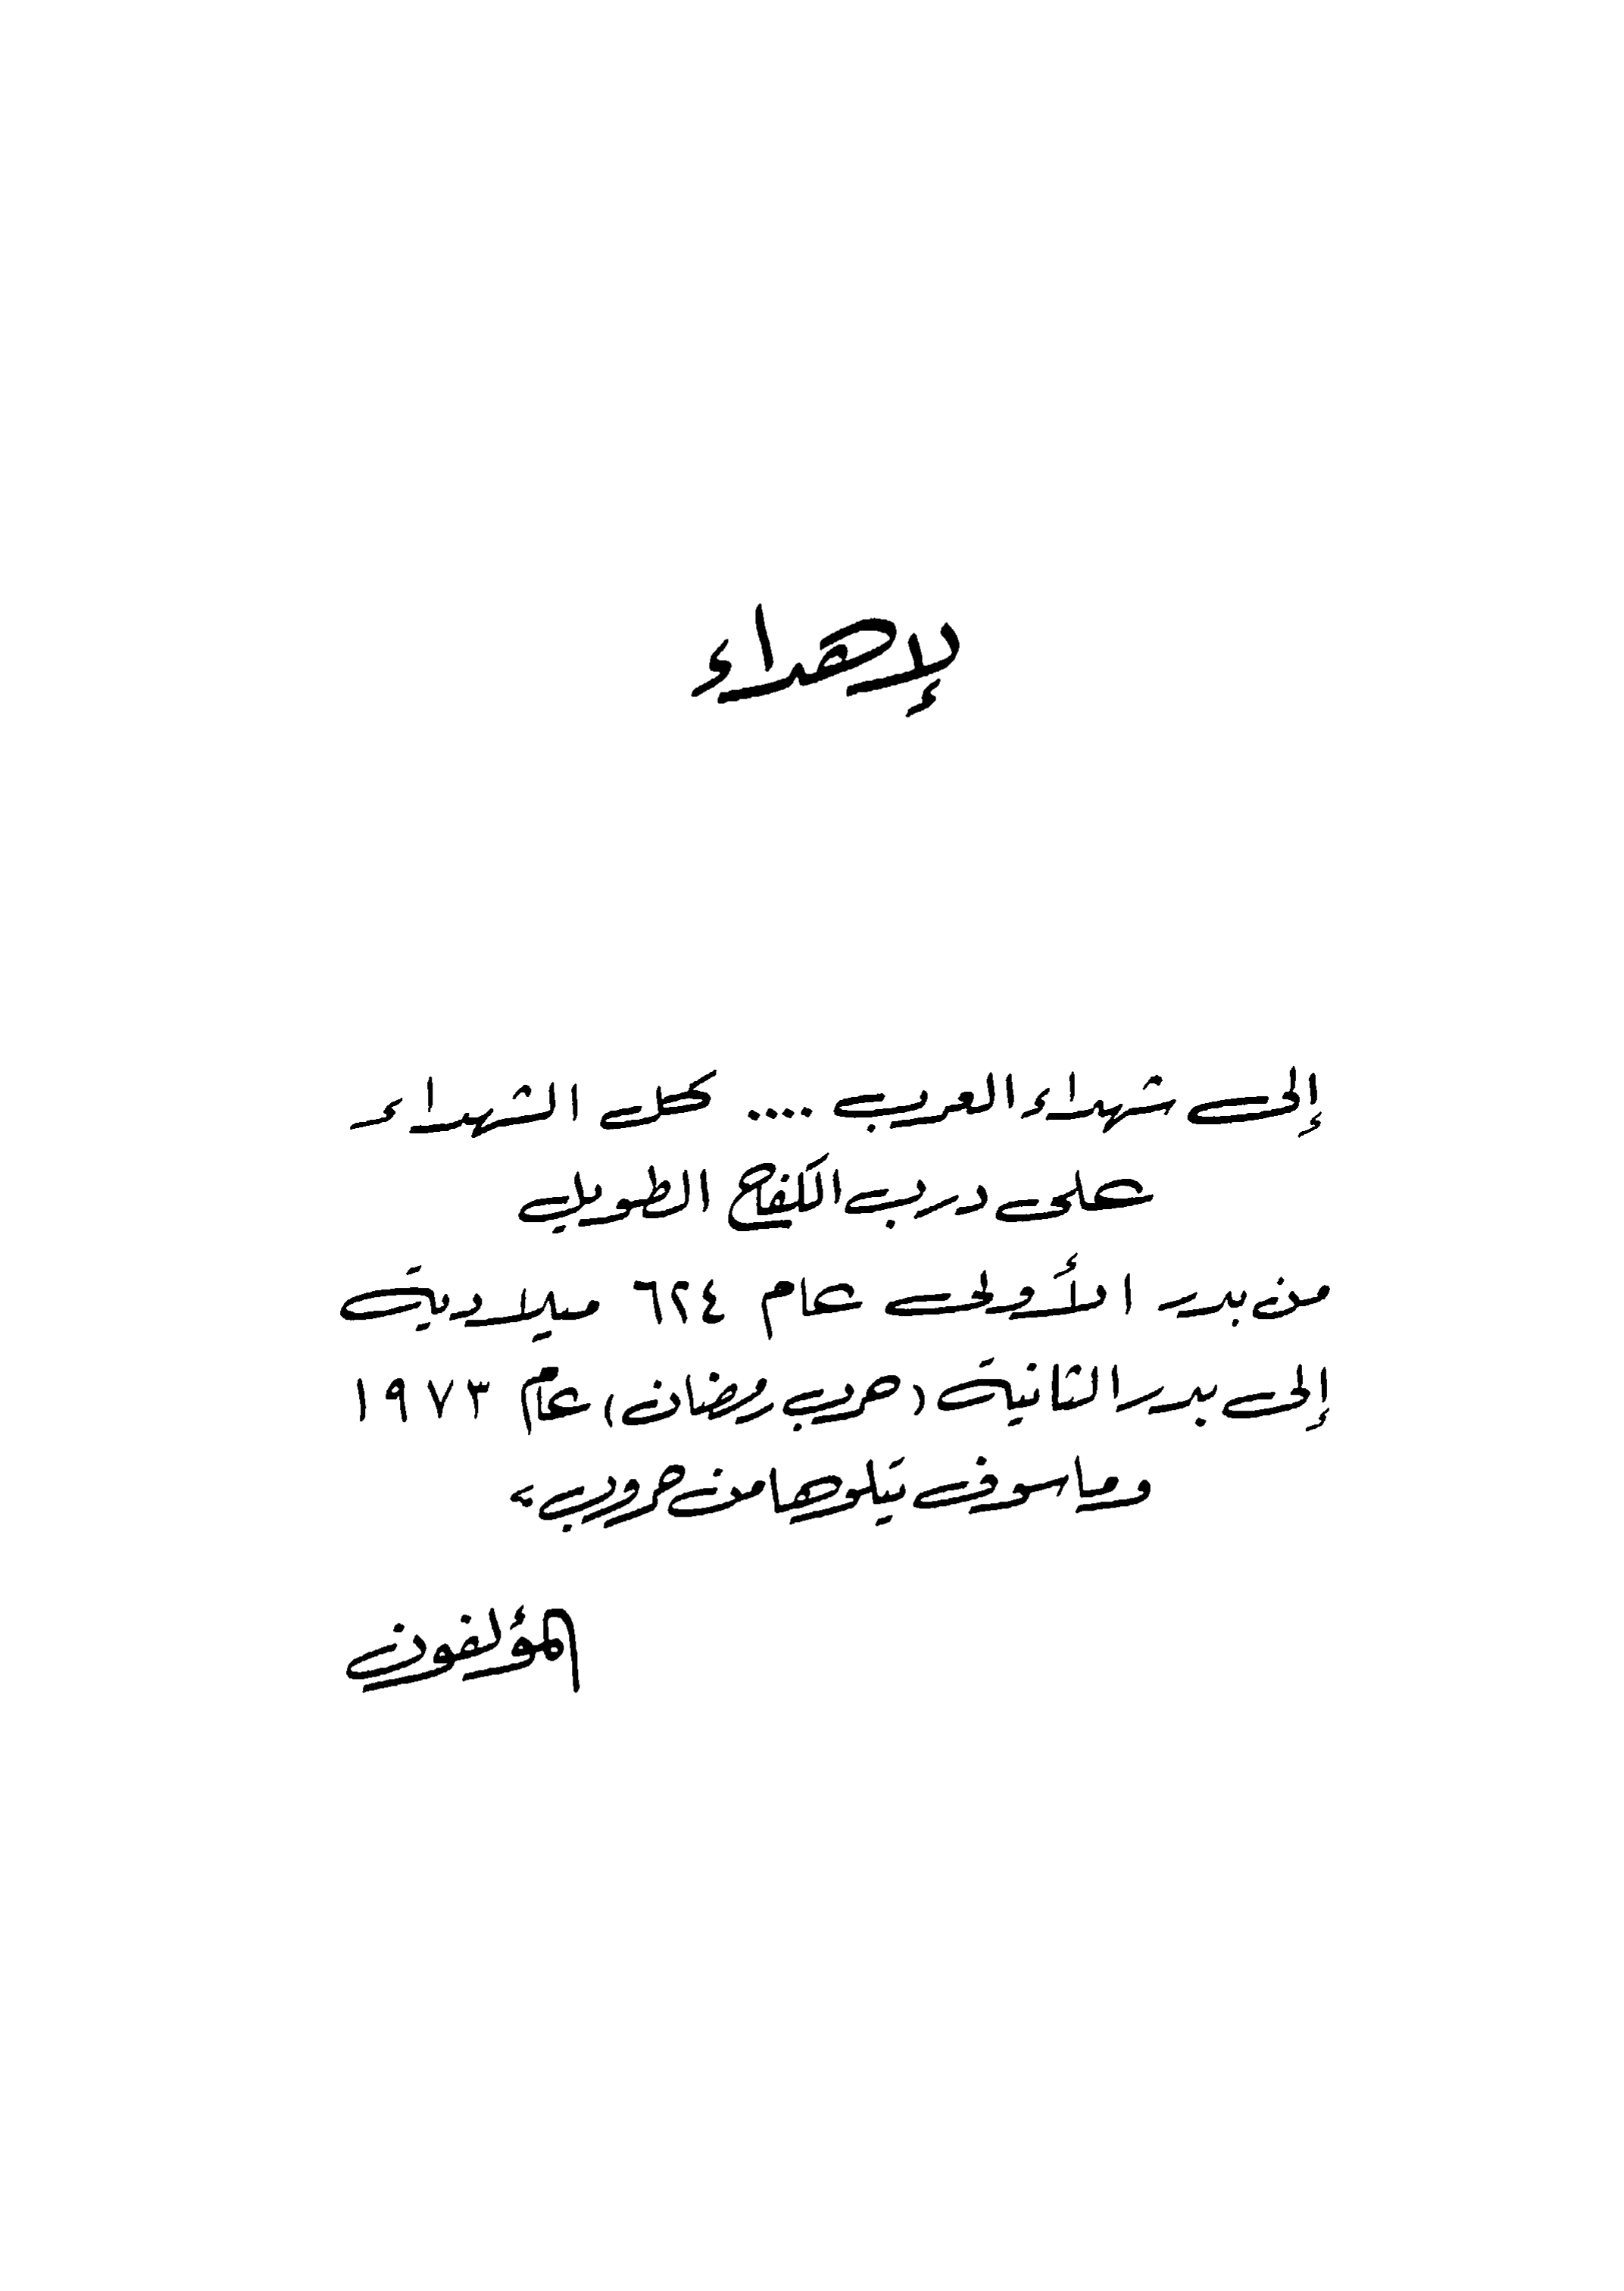 إهداء
إلى شهداء العرب .... كل الشهداء
على درب الكفاح الطويل
من بدر الأولى عام ٦٢٤ ميلادية
إلى بدر الثانية (حرب رمضان) عام ١٩٧٣
وما سوف يتلوها من حروب،
المؤلفون